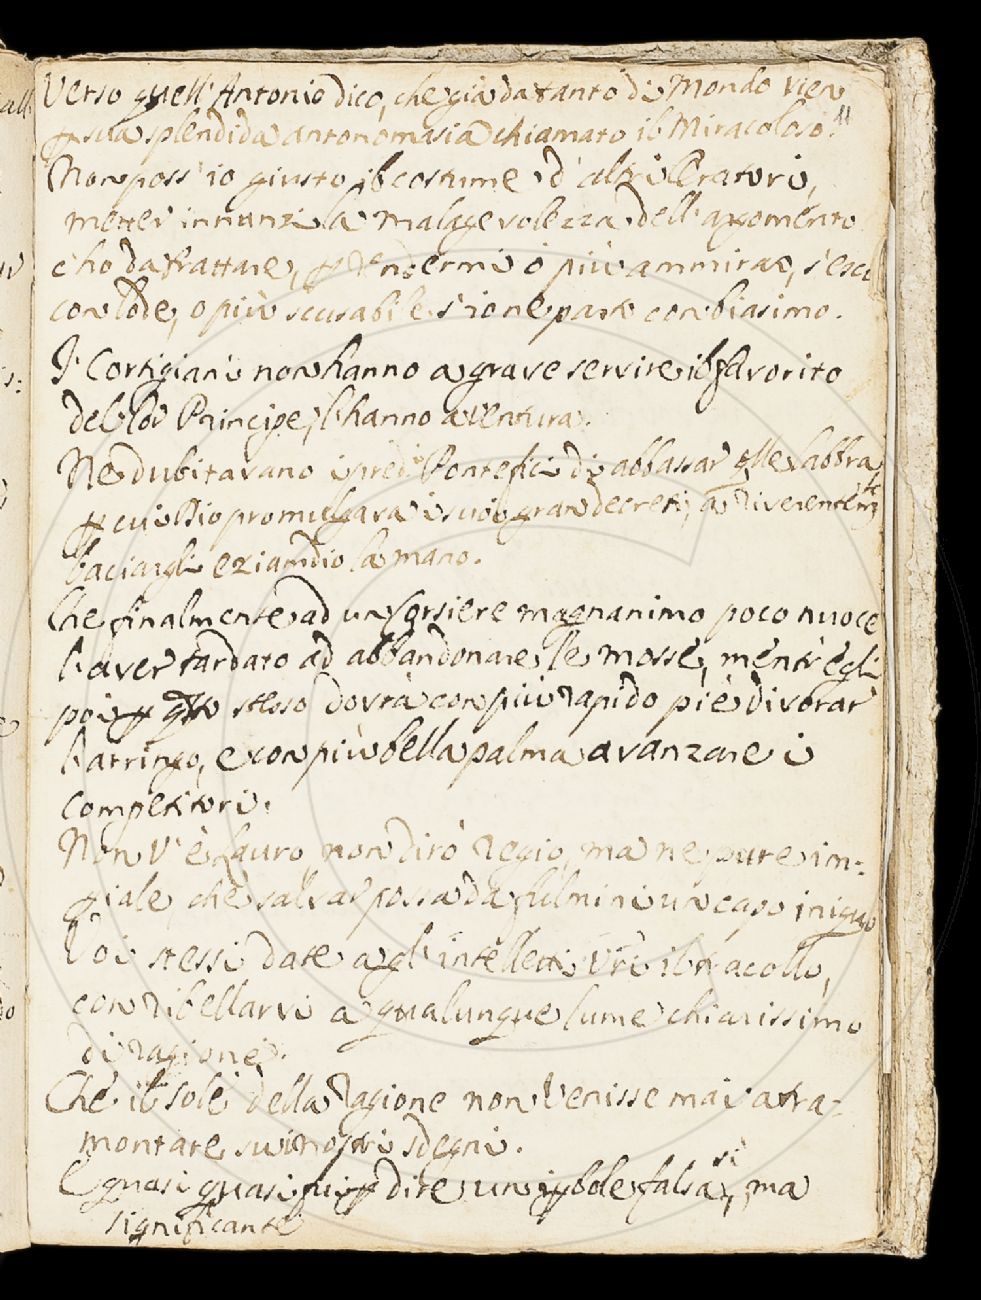 Verso quell' Antonio dico, che già da tanto di Mondo vien
sua splendida antonomasia chiamato il Miracoloso. 11
Non poss' io giusto il costume d' altri Oratori,
metter innanzi la malagevolezza dell' argomento
c'ho da trattare, rendermi o più ammirar, s'esco
con lode, o più scusabile s' io ne parto con biasimo.
I Cortigiani non hanno a grave servire il favorito
del lor Principe, l' hanno a ventura.
Ne dubitavano i Pontefici di abbassar labbra
cui Dio promulgava i suoi gran decreti, a riverentemte
baciargli eziamdio la mano.
Che finalmente ad un Corsiere magnanimo poco nuoce
l' aver tardato ad abbandonare le mosse, mentr' egli
poi stesso dovrà con più rapido piè divorar
l' arringo, e con più bella palma avanzare i
Competitori.
Non v' è lauro, non dirò Regio, ma ne pure im-
piale, che salvar possa da fulmini un capo iniquo
Voi stessi date agl' intelletti vri il tracollo,
con ribellarvi a qualunque lume chiarissimo
di ragione.
Che il sole della Ragione non venisse mai a tra-
montare sui nostri sdegni.
E quasi quasi dire un falsa sì, ma
significante